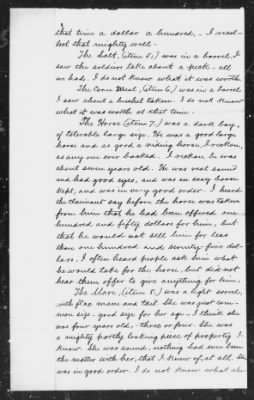 that time a dollar a hundred, - I recol-
lect that mighty well.
The Salt, (Item 5.) was in a barrel, I
saw the soldiers take about a peck - all
we had. I do not know what it was worth.
The Corn Meal, (Item 6) was in a barrel
I saw about a bushel taken. I do not know
what it was worth at that time.
The Horse (Item 7.) was a dark bay,
of tolerable large size. He was a good large
horse and as good a riding horse, I reckon,
as any one ever backed. I reckon he was
about seven years old. He was real sound
and had good eyes, and was an easy horse
kept, and was in very good order. I heard
the claimant say before the horse was taken
from him that he had been offered one
hundred and fifty dollars for him, but
that he would not sell him for less
than one hundred and seventy-five dol-
lars. I often heard people ask him what
he would take for the horse, but did not
hear them offer to give anything for him.
The Mare, (Item 8.) was a light sorrel,
with flax mane and tail. She was just com-
mon size - good size for her age - I think she
was four years old, - three or four. She was
a mighty portly looking piece of property I
know. She was sound, nothing had ever been
the matter with her, that I knew of, at all. She
was in good order. I do not know what she